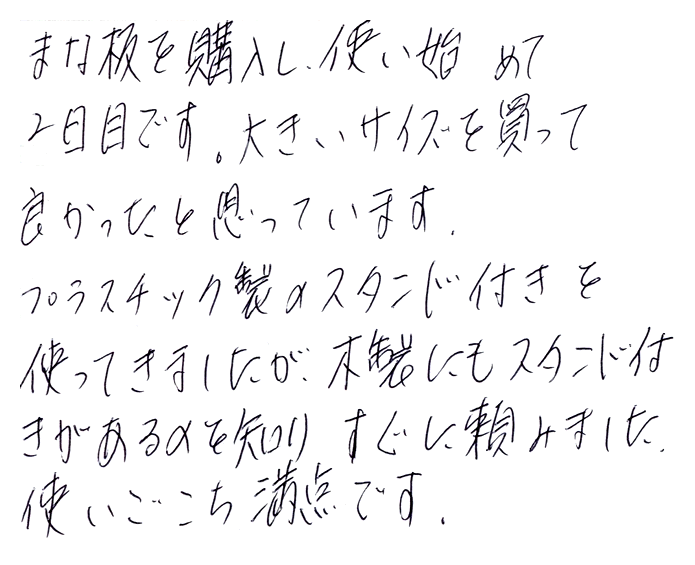 まな板を購入し、使い始めて
2日目です。大きいサイズを買って
良かったと思っています。
プラスチック製のスタンド付きを
使ってきましたが、木製にもスタンド付
きがあるのを知りすぐに頼みました。
使いごこち満点です。